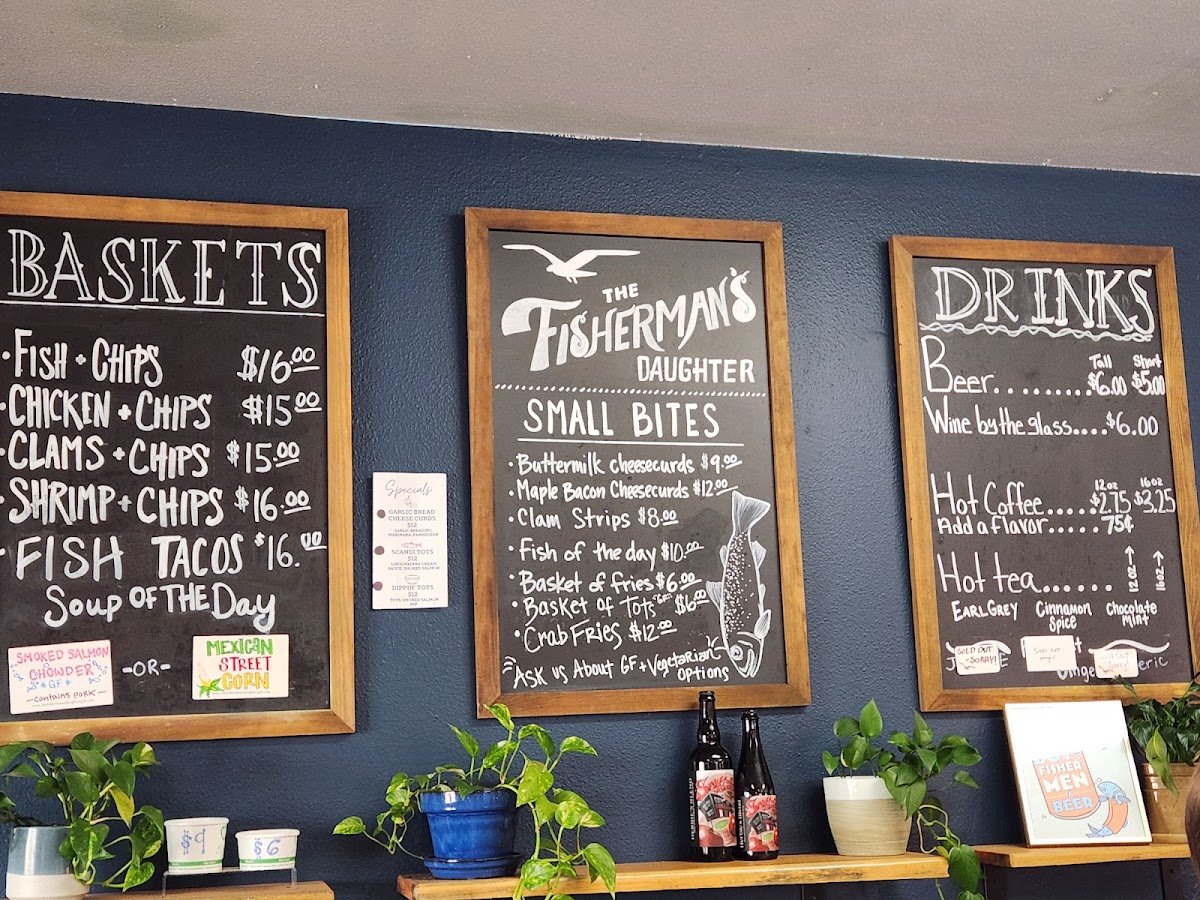 BASKETS
·FISH + CHIPS $16.00
·CHICKEN + CHIPS $15.00
·CLAMS + CHIPS $15.00
·SHRIMP + CHIPS $16.00
·FISH TACOS $16.00
Soup OF THE Day
SMOKED SALMON
CHOWDER
*GF*
-CONTAINS PORK-
-OR-
MEXICAN
STREET
CORN
$9
$6
Specials
GARLIC BREAD
CHEESE CURDS
$12
GARLIC BREADING,
MARINARA, PARMESEAN
SCANDI TOTS
$12
LINGONBERRY CREAM
SAUCE, SMOKED SALMON
DIPPIN' TOTS
$12
TOTS, SMOKED SALMON
DIP
THE
FISHERMAN'S
DAUGHTER
SMALL BITES
·Buttermilk cheesecurds $9.00
·Maple Bacon Cheesecurds $12.00
·Clam Strips $8.00
·Fish of the day $10.00
·Basket of fries $6.00
·Basket of Tots "GF" $6.00
·Crab Fries $12.00
ASK US ABOUT GF + Vegetarian
options
DRINKS
Tall Short
Beer........$6.00 $5.00
Wine by the glass....$6.00
12oz 16oz
Hot Coffee.....$2.75 $3.25
Add a flavor......75¢
Hot tea......
12oz
16oz
EARL GREY Cinnamon Spice Chocolate Mint
SOLD OUT
-SORRY!
FISHER
MEN
BEER